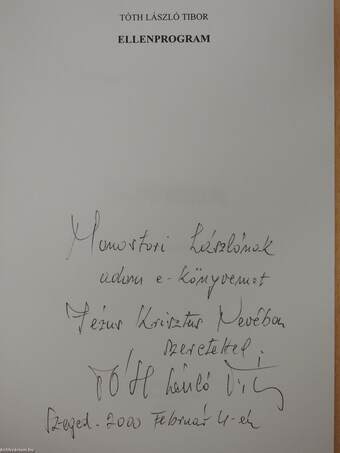 TÓTH LÁSZLÓ TIBOR
ELLENPROGRAM
Monostori Lászlónak
adom e-könyvemet
Jézus Krisztus Nevében
szeretettel;
TÓTH László
Szeged. 2000 Február 4-én